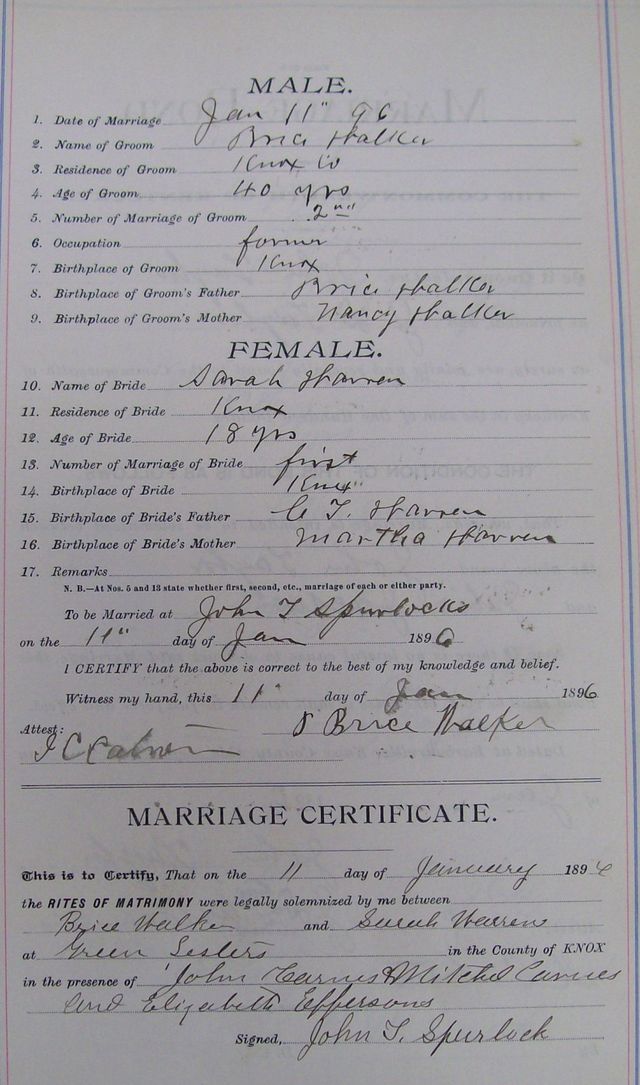 MALE.
1. Date of Marriage Jan 11" 96
2. Name of Groom Brice Walker
3. Residence of Groom Knox Co
4. Age of Groom 40 yrs
5. Number of Marriage of Groom 2nd
6. Occupation farmer
7. Birthplace of Groom Knox
8. Birthplace of Groom's Father Brice Walker
9. Birthplace of Groom's Mother Nancy Walker
FEMALE.
10. Name of Bride Sarah Warren
11. Residence of Bride Knox
12. Age of Bride 18 yrs
13. Number of Marriage of Bride first
14. Birthplace of Bride Knox"
15. Birthplace of Bride's Father C T. Warren
16. Birthplace of Bride's Mother Martha Warren
17. Remarks
N. B.—At Nos. 5 and 13 state whether first, second, etc., marriage of each or either party.
To be Married at John T Spurlocks
on the 11" day of Jan 1896
I CERTIFY that the above is correct to the best of my knowledge and belief.
Witness my hand, this 11" day of Jan 1896
Attest: Brice Walker
MARRIAGE CERTIFICATE.
This is to Certify, That on the 11 day of January 189
the RITES OF MATRIMONY were legally solemnized by me between
Brice Walker and Sarah Warren
at Green in the County of KNOX
in the presence of John Carnes & Mitchel Carnes
and Elizabeth Effersons
Signed, John T. Spurlock